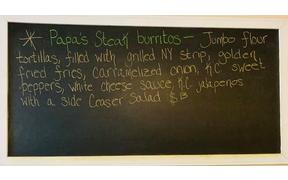 * Papa's Steak burritos - Jumbo flour
tortillas, filled with grilled NY strip, golden
fried fries, carramelized onion, KC sweet
peppers, white cheese sauce, KC jalapenos
with a side Ceaser Salad $13